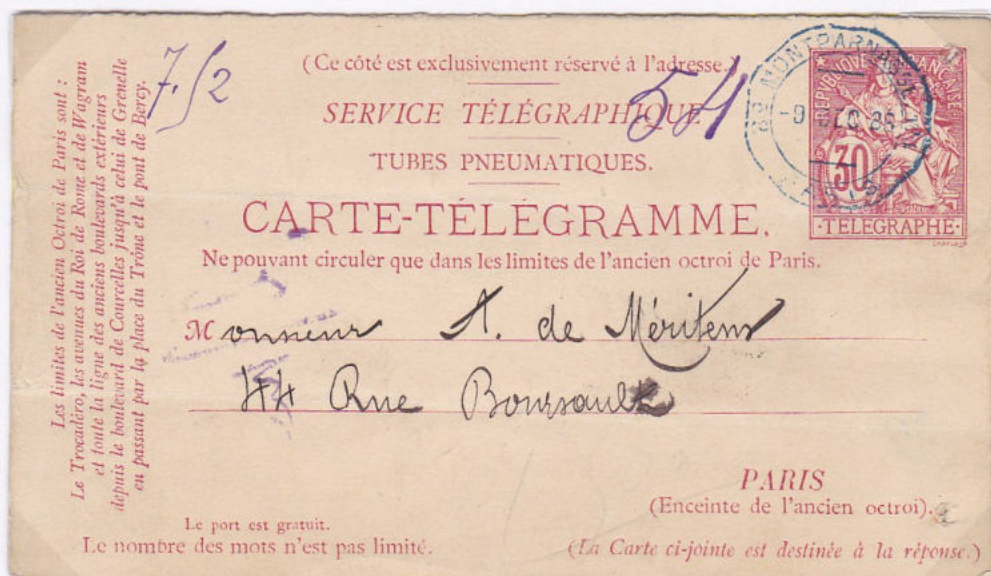 Les limites de l'ancien Octroi de Paris sont :
Le Trocadéro, les avenues du Roi de Rome et de Wagram
et toute la ligne des anciens boulevards extérieurs
depuis le boulevard de Courcelles jusqu'à celui de Grenelle
en passant par la place du Trône et le pont de Bercy.
7/52
(Ce côté est exclusivement réservé à l'adresse.)
54
SERVICE TÉLÉGRAPHIQUE.
TUBES PNEUMATIQUES.
CARTE-TÉLÉGRAMME.
Ne pouvant circuler que dans les limites de l'ancien octroi de Paris.
MONTPARNASSE
RÉPUBLIQUE FRANÇAISE
30
·TÉLÉGRAPHE·
Monsieur A. de Méritens
44 Rue Boursault
PARIS
(Enceinte de l'ancien octroi).
Le port est gratuit.
Le nombre des mots n'est pas limité.
(La Carte ci-jointe est destinée à la réponse.)